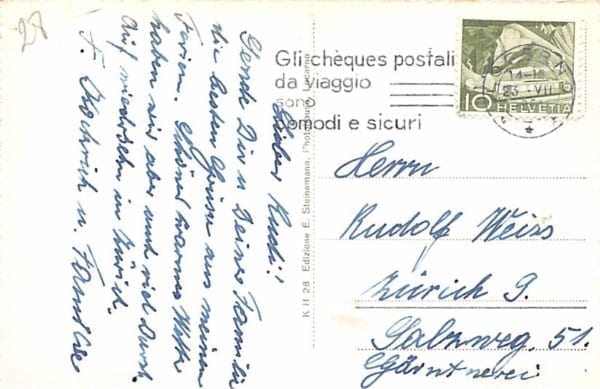 28
Lieber Rudi!
Sende Dir u Deiner Familie
die besten Grüsse aus meinen
Ferien. Schönes warmes Wetter
haben wir aber und viel Durst.
Auf wiedersehn in Zürich.
F. u. Familie
K H 28 Edizione E. Steinemann, Photo Locarno
Gli chèques postali
da viaggio
sono
comodi e sicuri
14-
23. VII
10 HELVETIA
Herrn
Rudolf Weiss
Zürich 9.
Salzweg. 51.
Gärtnerei